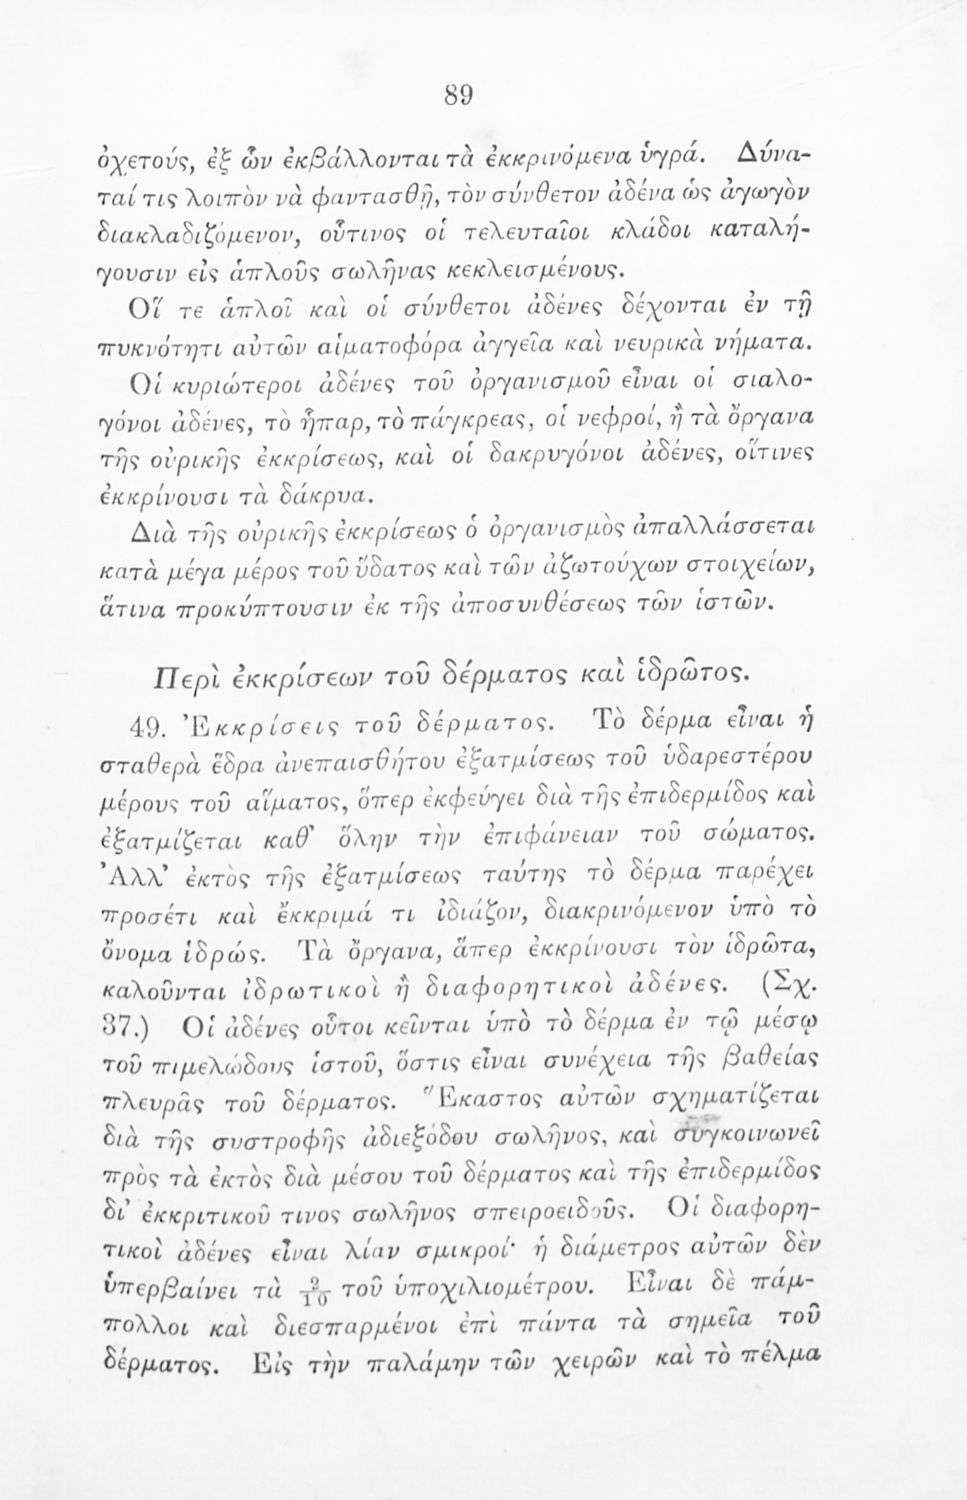 89
ὀχετούς, ἐξ ὧν ἐκβάλλονται τὰ ἐκκρινόμενα ὑγρά. Δύνα-
ταί τις λοιπὸν νὰ φαντασθῇ, τὸν σύνθετον ἀδένα ὡς ἀγωγὸν
διακλαδιζόμενον, οὗτινος οἱ τελευταῖοι κλάδοι καταλή-
γουσιν εἰς ἁπλοῦς σωλῆνας κεκλεισμένους.
Οἵ τε ἁπλοῖ καὶ οἱ σύνθετοι ἀδένες δέχονται ἐν τῇ
πυκνότητι αὐτῶν αἱματοφόρα ἀγγεῖα καὶ νευρικὰ νήματα.
Οἱ κυριώτεροι ἀδένες τοῦ ὀργανισμοῦ εἶναι οἱ σιαλο-
γόνοι ἀδένες, τὸ ἧπαρ, τὸ πάγκρεας, οἱ νεφροί, ἢ τὰ ὄργανα
τῆς οὐρικῆς ἐκκρίσεως, καὶ οἱ δακρυγόνοι ἀδένες, οἵτινες
ἐκκρίνουσι τὰ δάκρυα.
Διὰ τῆς οὐρικῆς ἐκκρίσεως ὁ ὀργανισμὸς ἀπαλλάσσεται
κατὰ μέγα μέρος τοῦ ὕδατος καὶ τῶν ἀζωτούχων στοιχείων,
ἅτινα προκύπτουσιν ἐκ τῆς ἀποσυνθέσεως τῶν ἱστῶν.
Περὶ ἐκκρίσεων τοῦ δέρματος καὶ ἱδρῶτος.
49. Ἐκκρίσεις τοῦ δέρματος. Τὸ δέρμα εἶναι ἡ
σταθερὰ ἕδρα ἀνεπαισθήτου ἐξατμίσεως τοῦ ὑδαρεστέρου
μέρους τοῦ αἵματος, ὅπερ ἐκφεύγει διὰ τῆς ἐπιδερμίδος καὶ
ἐξατμίζεται καθ' ὅλην τὴν ἐπιφάνειαν τοῦ σώματος.
Ἀλλ' ἐκτὸς τῆς ἐξατμίσεως ταύτης τὸ δέρμα παρέχει
προσέτι καὶ ἔκκριμά τι ἰδιάζον, διακρινόμενον ὑπὸ τὸ
ὄνομα ἱδρώς. Τὰ ὄργανα, ἅπερ ἐκκρίνουσι τὸν ἱδρῶτα,
καλοῦνται ἱδρωτικοὶ ἢ διαφορητικοὶ ἀδένες. (Σχ.
37.) Οἱ ἀδένες οὗτοι κεῖνται ὑπὸ τὸ δέρμα ἐν τῷ μέσῳ
τοῦ πιμελώδους ἱστοῦ, ὅστις εἶναι συνέχεια τῆς βαθείας
πλευρᾶς τοῦ δέρματος. Ἕκαστος αὐτῶν σχηματίζεται
διὰ τῆς συστροφῆς ἀδιεξόδου σωλῆνος, καὶ συγκοινωνεῖ
πρὸς τὰ ἐκτὸς διὰ μέσου τοῦ δέρματος καὶ τῆς ἐπιδερμίδος
δι' ἐκκριτικοῦ τινος σωλῆνος σπειροειδοῦς. Οἱ διαφορη-
τικοὶ ἀδένες εἶναι λίαν σμικροί· ἡ διάμετρος αὐτῶν δὲν
ὑπερβαίνει τὰ 2/10 τοῦ ὑποχιλιομέτρου. Εἶναι δὲ πάμ-
πολλοι καὶ διεσπαρμένοι ἐπὶ πάντα τὰ σημεῖα τοῦ
δέρματος. Εἰς τὴν παλάμην τῶν χειρῶν καὶ τὸ πέλμα